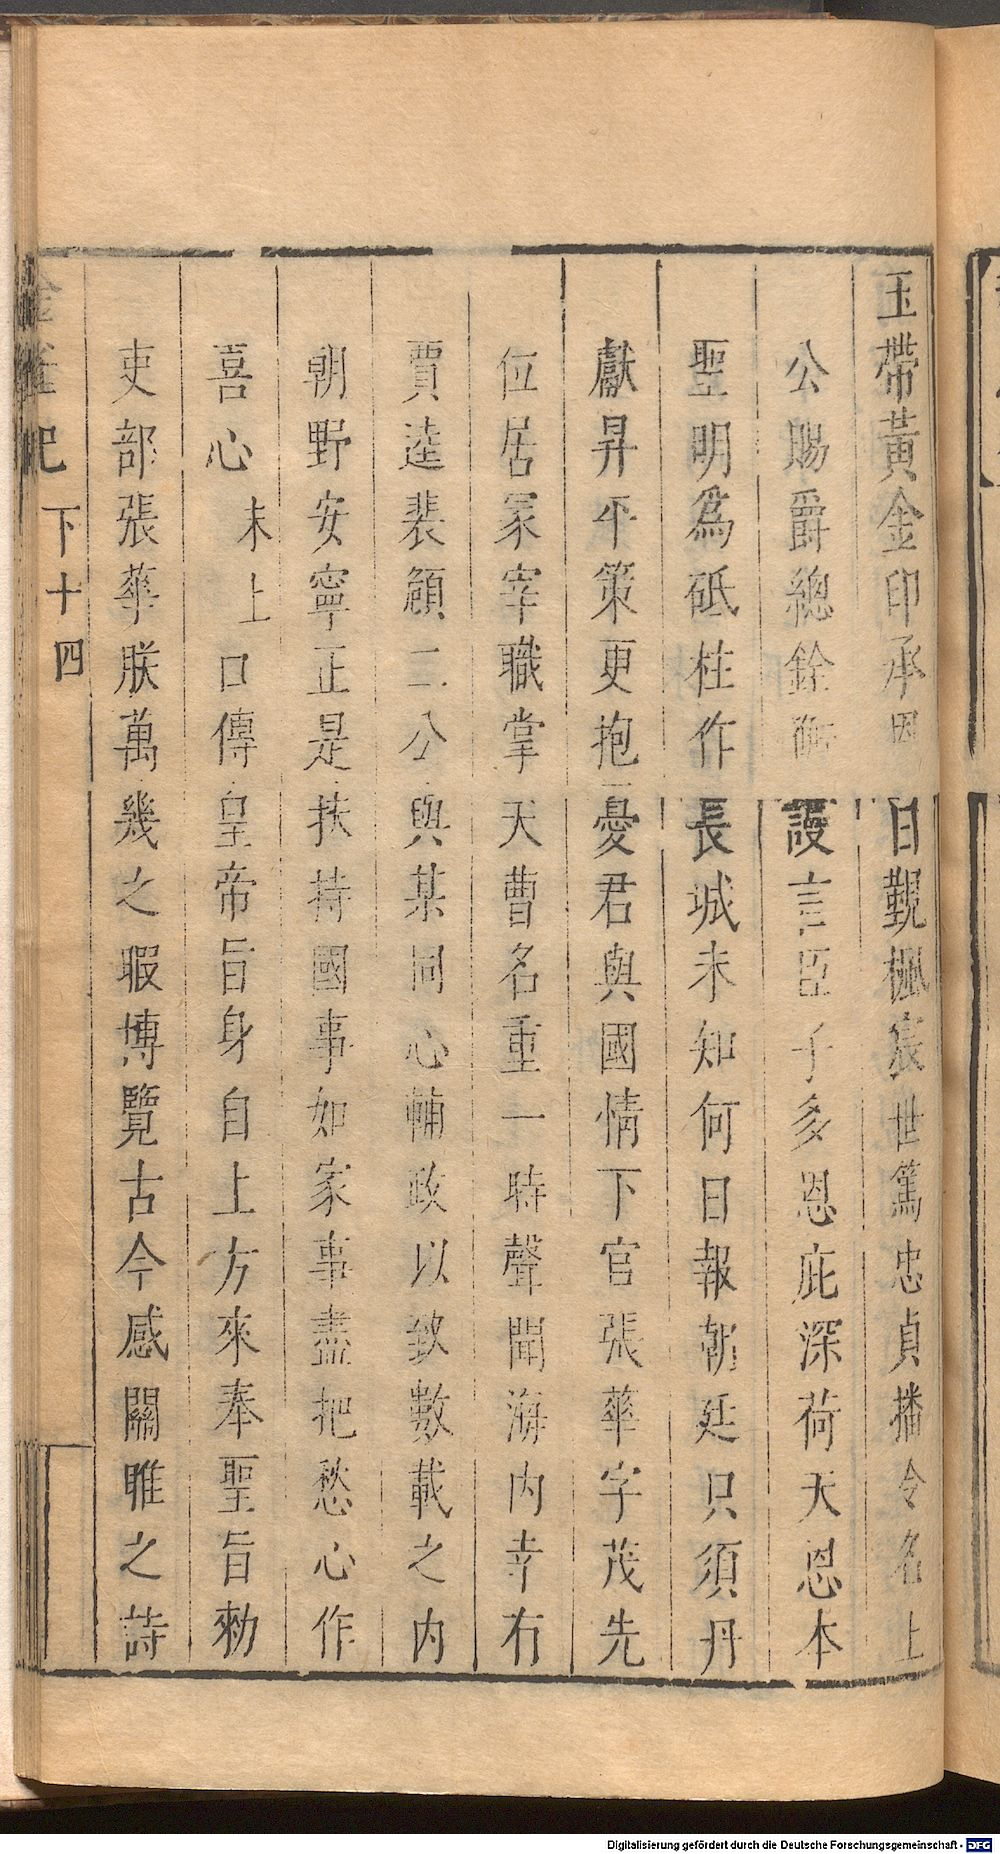 玉帶黃金印承恩日觀楓宸世篤忠貞播令名上
公賜爵總銓衡謾言臣子多恩庇深荷天恩本
聖明爲砥柱作長城未知何日報朝廷只須丹
獻昇平策更抱憂君與國情下官張華字茂先
位居冢宰職掌天曹名重一時聲聞海内幸有
賈逵裴頠二公與某同心輔政以致數載之内
朝野安寧正是扶持國事如家事盡把愁心作
喜心末上口傳皇帝旨身自上方來奉聖旨勑
吏部張華朕萬幾之暇博覽古今感關雎之詩
金雀記
下十四
Digitalisierung gefördert durch die Deutsche Forschungsgemeinschaft - DFG